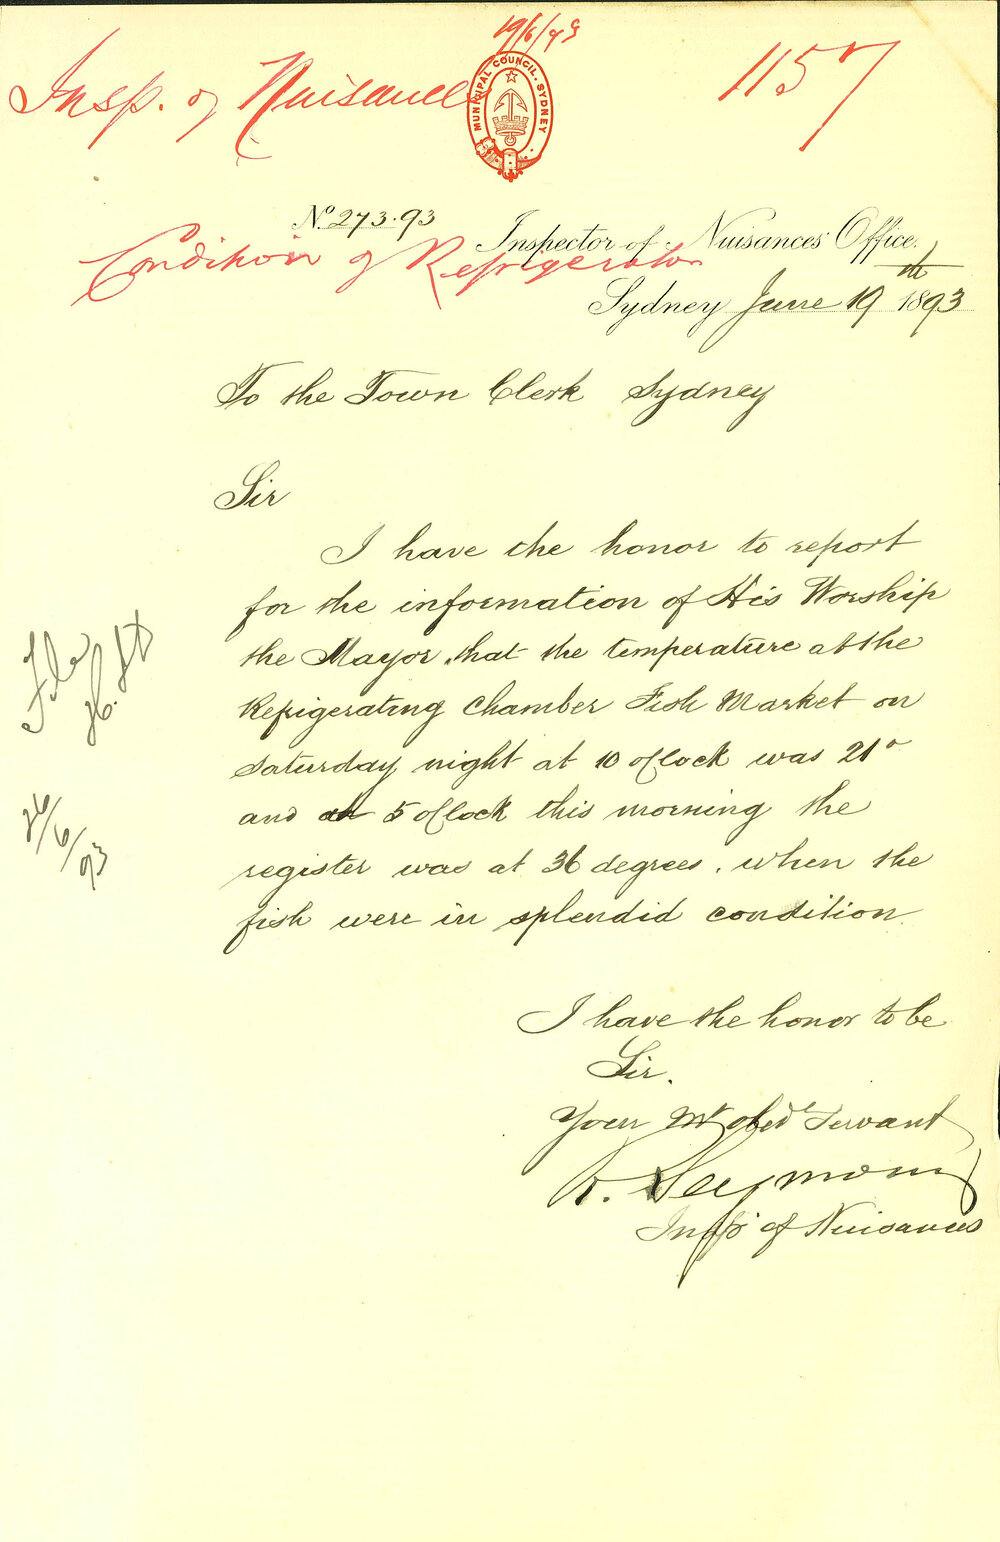 19/6/93
Insp. of Nuisances
1157
MUNICIPAL COUNCIL. SYDNEY
No. 273.93
Inspector of Nuisances Office.
Condition of Refrigerator
Sydney June 19th 1893
To the Town Clerk Sydney
Sir
I have the honor to report
for the information of His Worship
the Mayor, that the temperature at the
Refrigerating Chamber Fish Market on
Saturday night at 10 o'clock was 21°
and at 5 o'clock this morning the
register was at 36 degrees. when the
fish were in splendid condition.
File
26/6/93
I have the honor to be
Sir.
Your Mt obed Servant
R. Seymour
Inspr of Nuisances